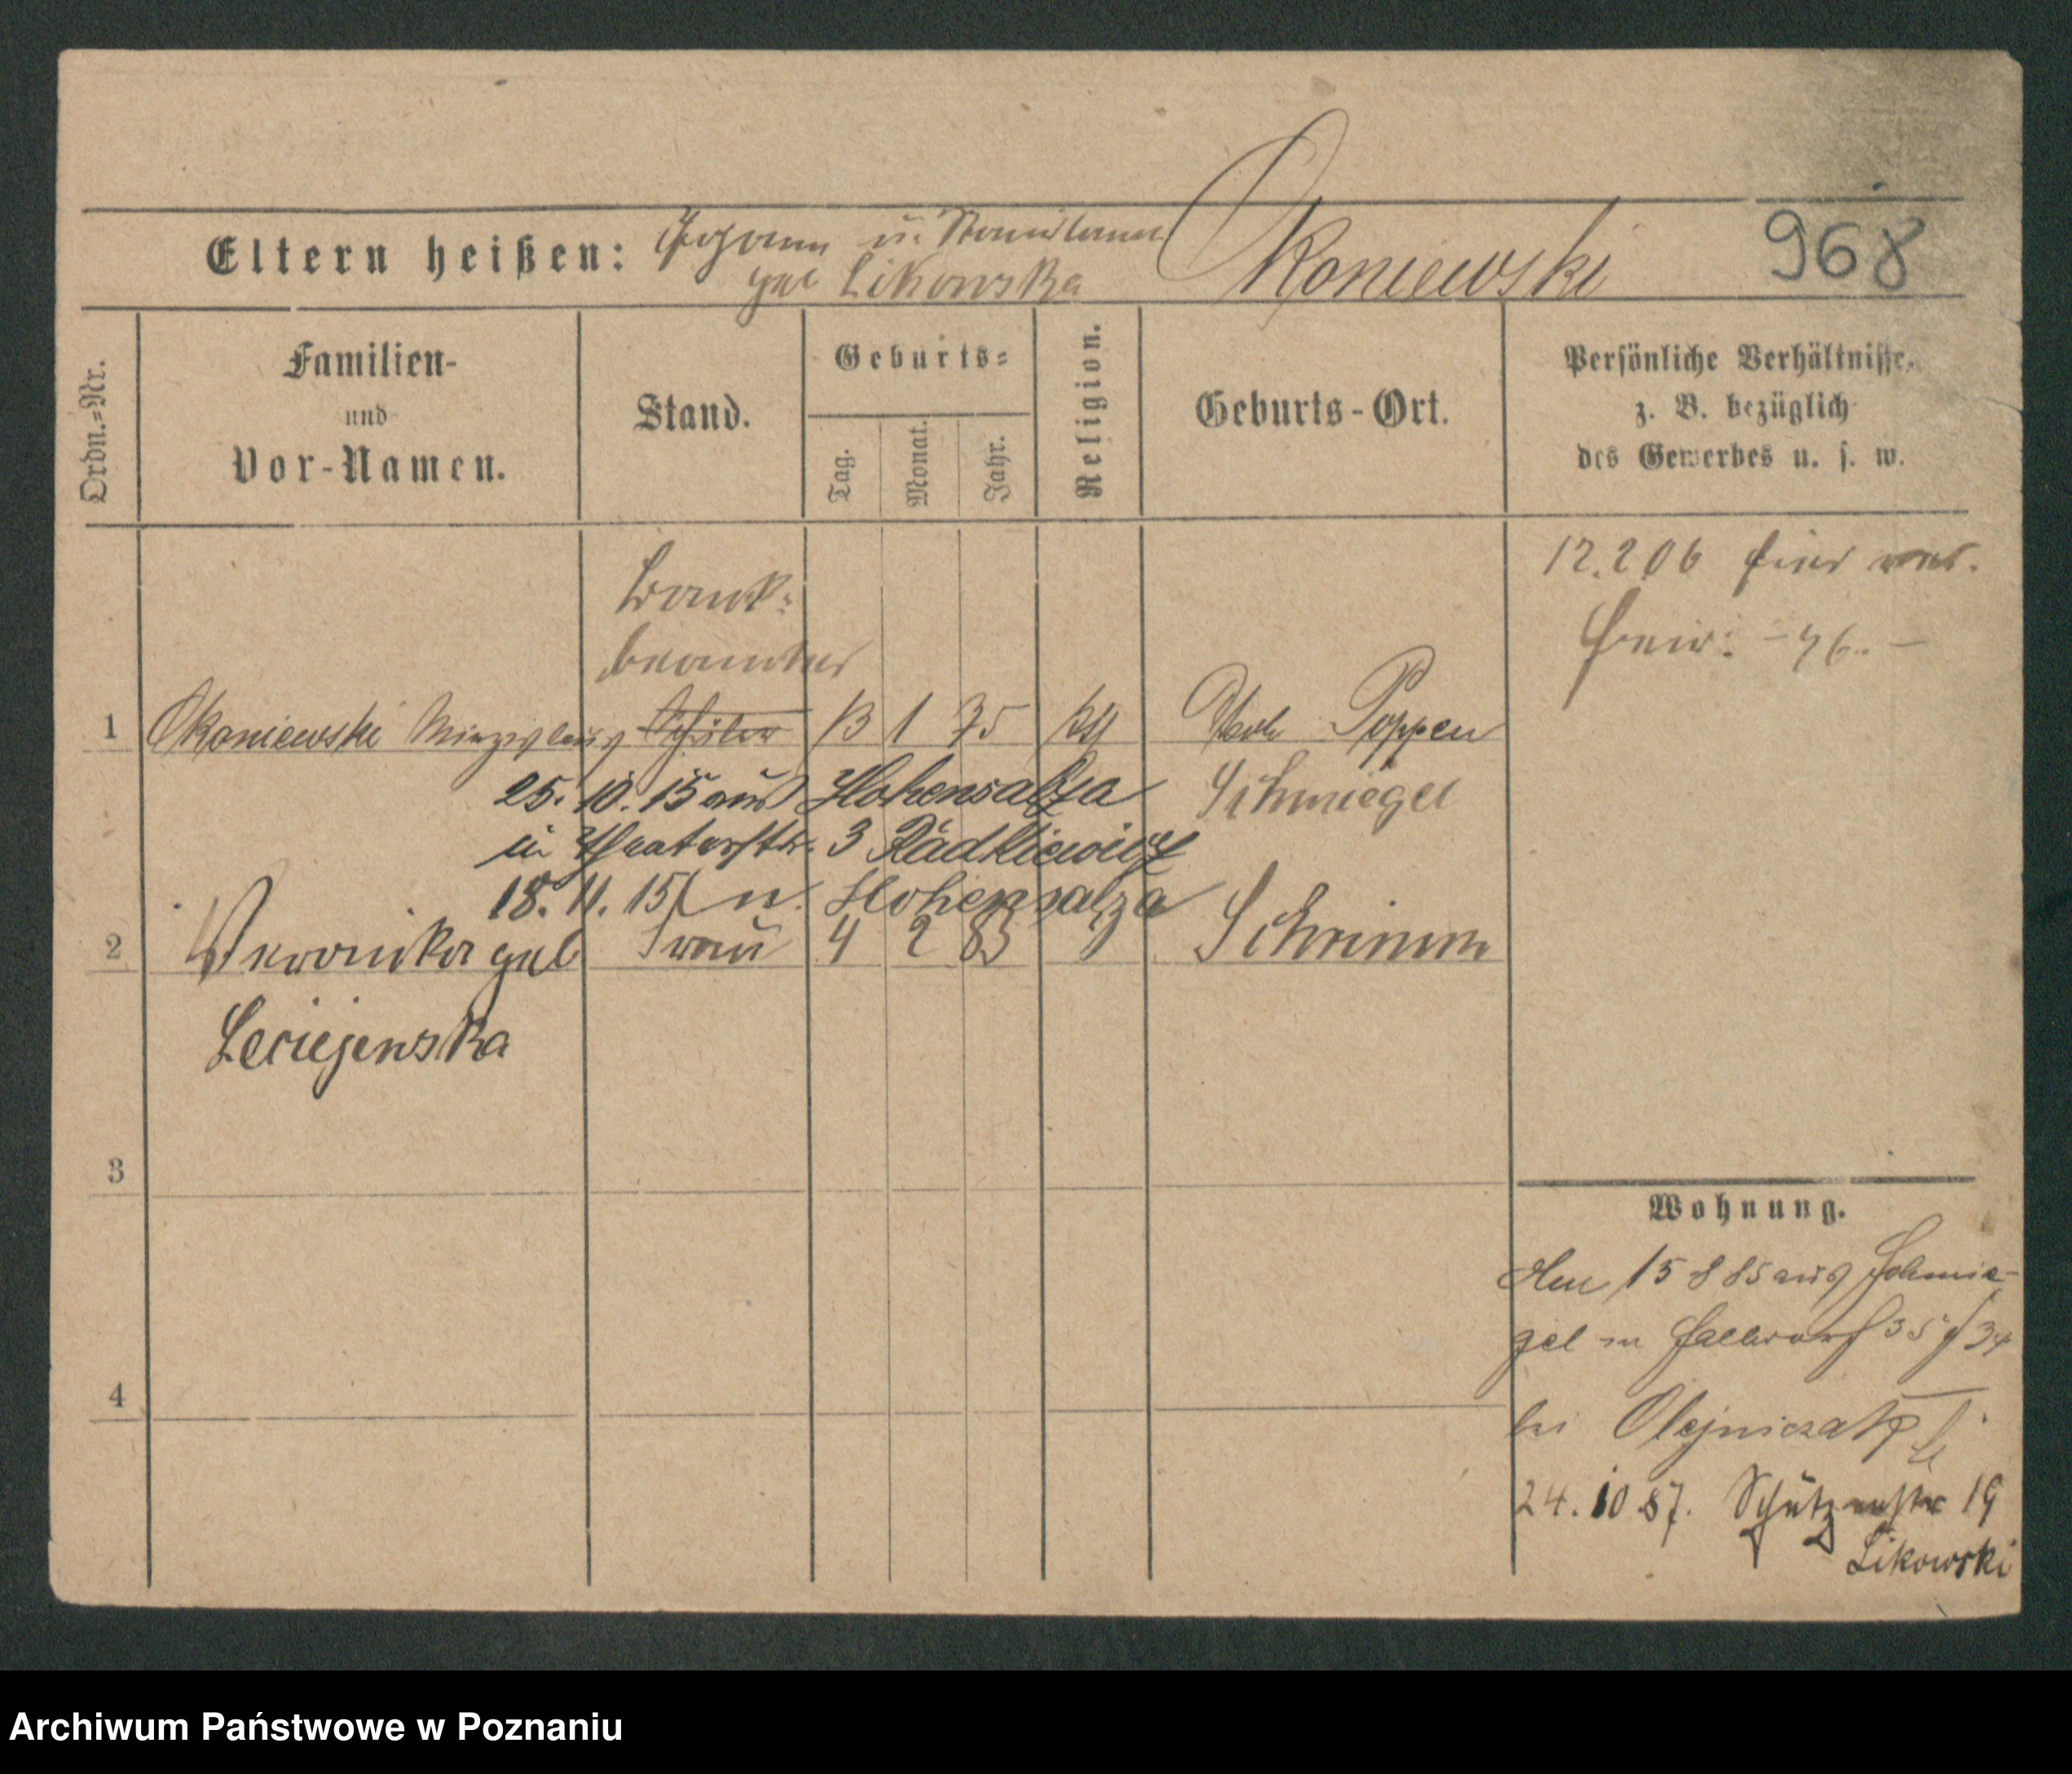 Eltern heißen: Johann u. Stanislawa Okoniewski 968
geb Likowska
Ordn.=Nr.
Familien-
und
Vor-Namen.
Stand.
Geburts=
Tag.
Monat.
Jahr.
Religion.
Geburts-Ort.
Persönliche Verhältnisse,
z. B. bezüglich
des Gewerbes u. s. w.
12.2.06
Bank=
beamter
1 Okoniewski Schüler 13 1 75 kth Poppen
25. 10. 15 aus Hohensalza Schmiegel
in Theaterstr. 3 Radkiewicz
18. 11. 15 n. Hohensalza
2 Veronika geb Frau 4 2 83 Schrimm
Leciejewska
3
4
Wohnung.
Den 15 8 85 aus Schmie-
gel in 35 34
bei Olejniczak
24. 10 87. Schützenstr 19
Likowski
Archiwum Państwowe w Poznaniu